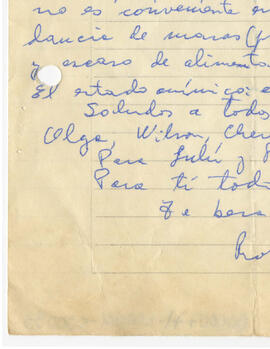 no es conveniente
dancia de
y escaso de alimento
El estado anímico:
Saludos a todos
Olga, Wilson, Cher
Para Lulú y
Para ti tod
Te besa